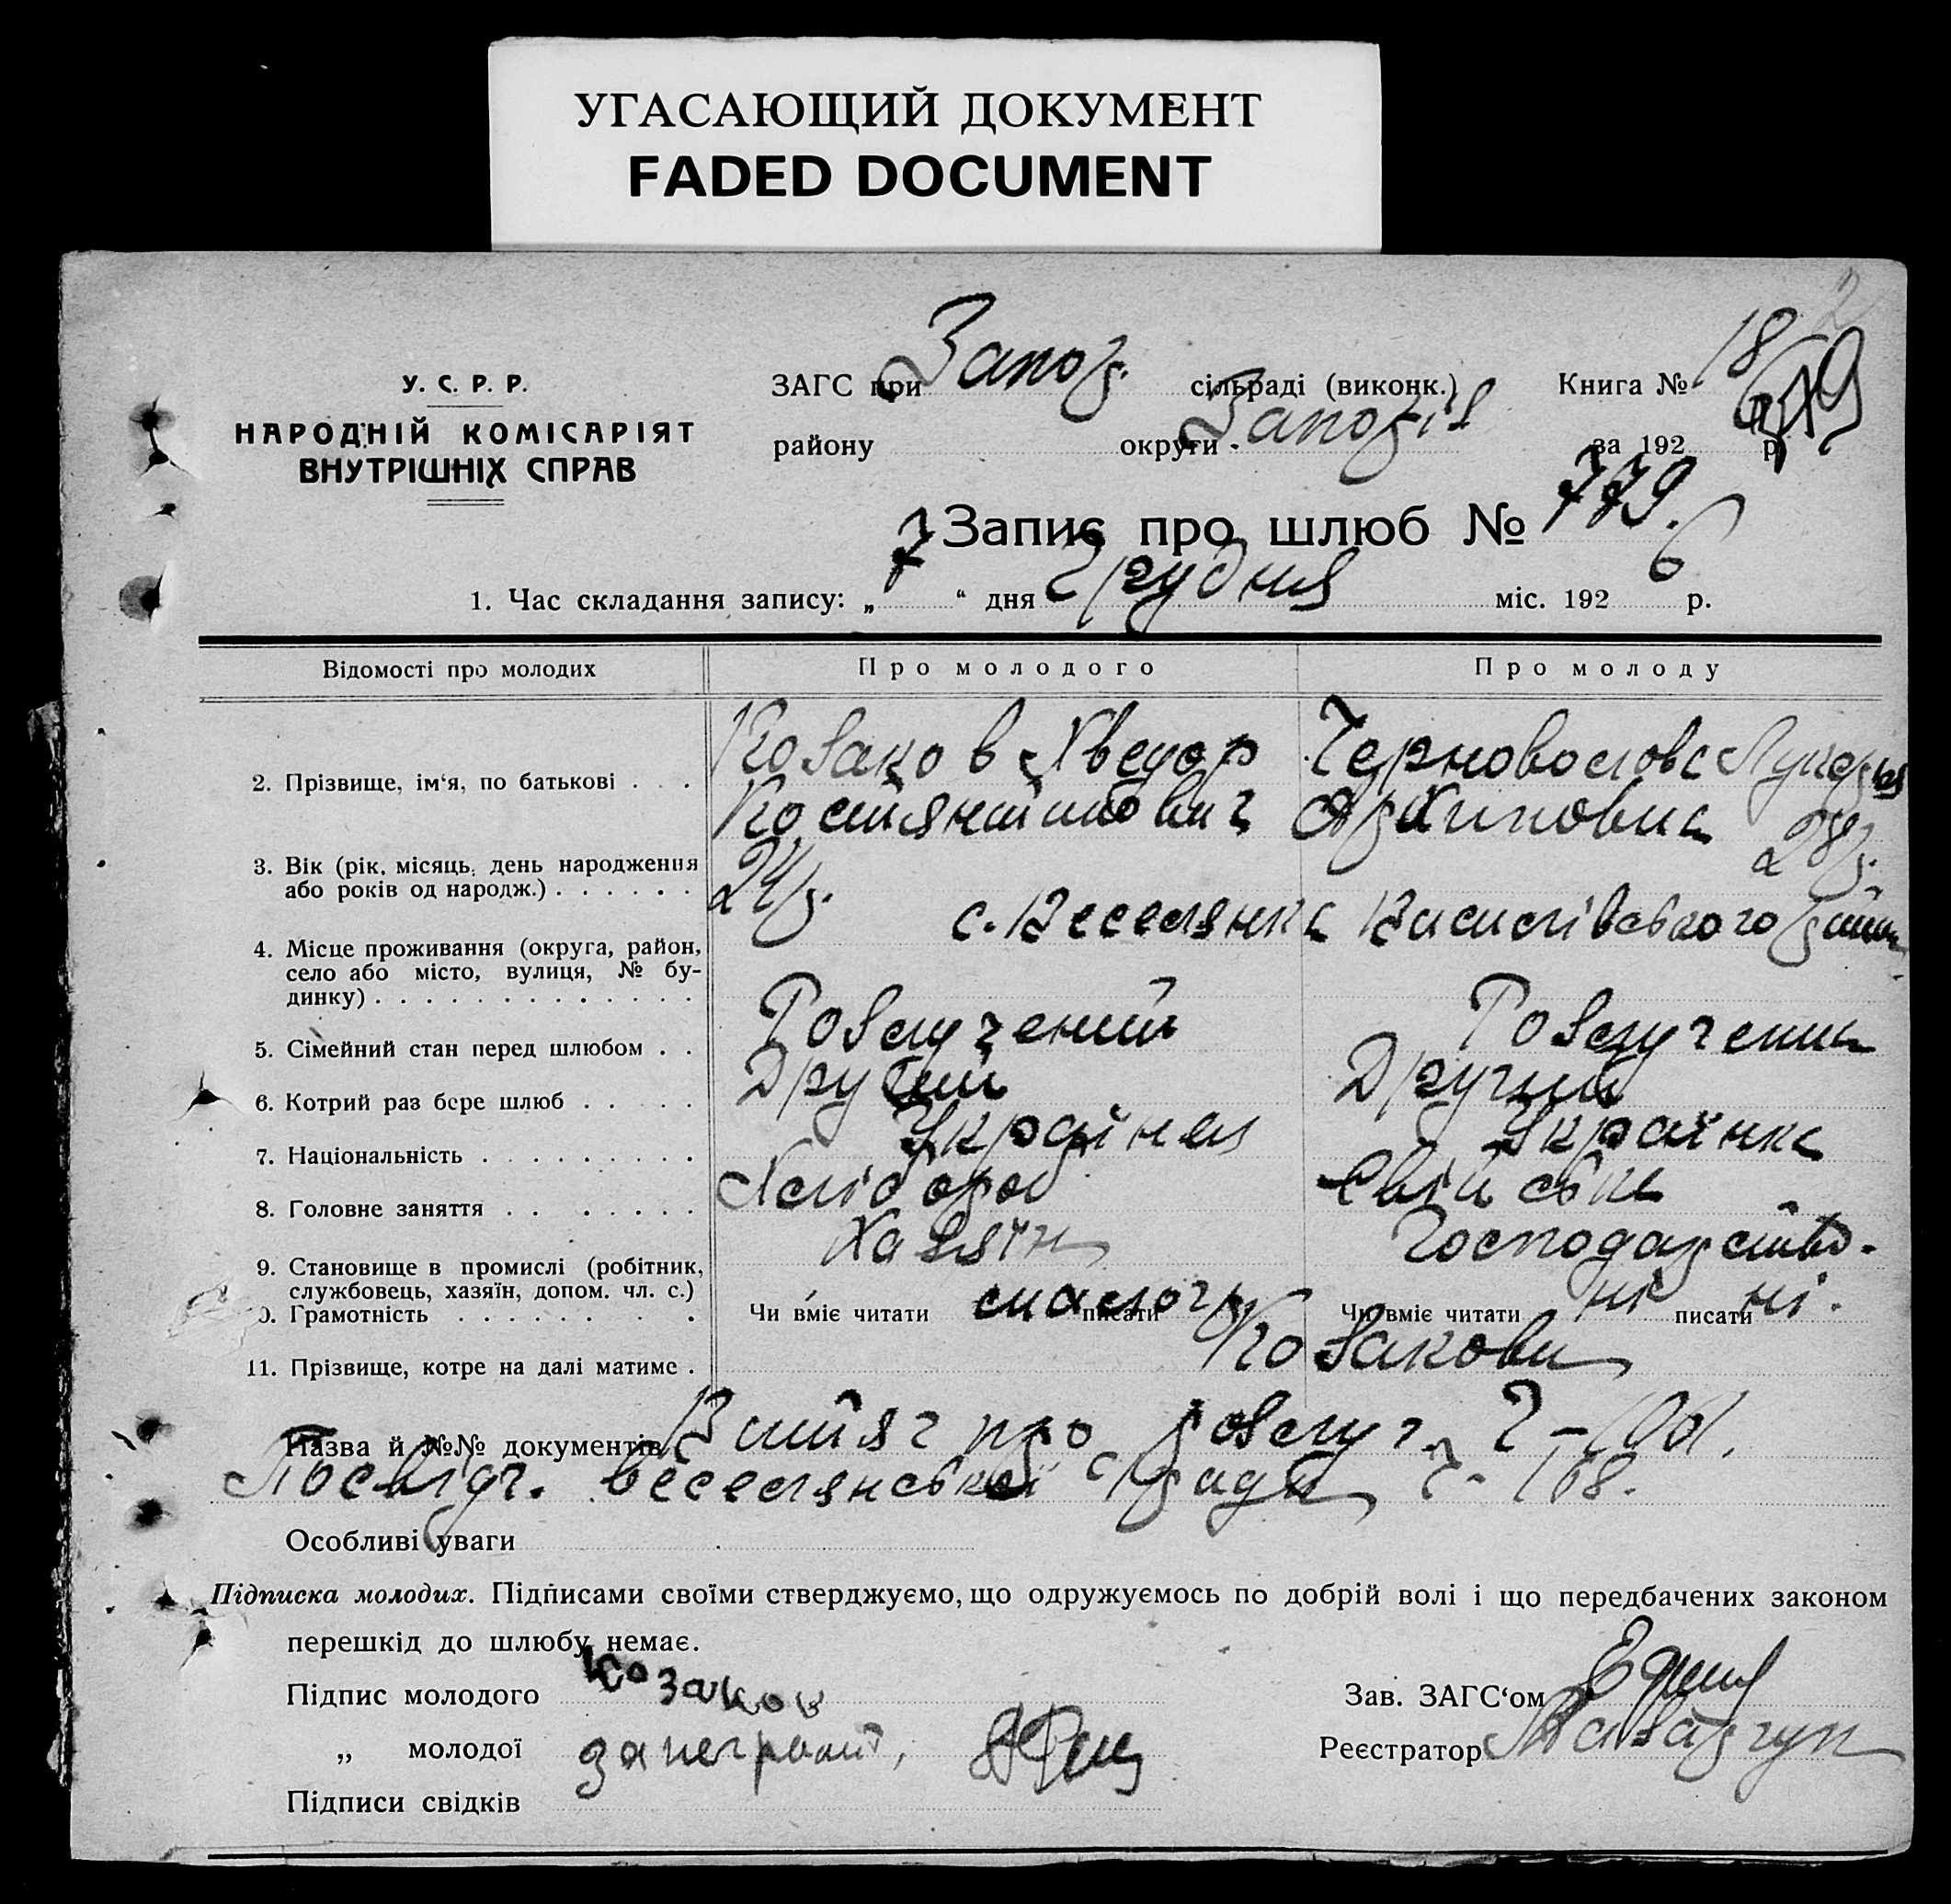 УГАСАЮЩИЙ ДОКУМЕНТ
FADED DOCUMENT
У. С. Р. Р.
НАРОДНІЙ КОМІСАРІЯТ
ВНУТРІШНІХ СПРАВ
ЗАГС при Запоз. сільраді (виконк.) Книга № 18
району округи Запоріз за 192 р.
Запис про шлюб № 779.
1. Час складання запису: „ 7 “ дня Грудня міс. 192 6 р.
Відомості про молодих Про молодого Про молоду
2. Прізвище, ім‘я, по батькові . . . Козаков Хведор Костянтинович Черноволова Архиповна
3. Вік (рік, місяць, день народження або років од народж.) . . . . . . 24 р. 28 р.
4. Місце проживання (округа, район, село або місто, вулиця, № будинку) . . . . . . . . . . . . . с. Веселянка Василівського району
5. Сімейний стан перед шлюбом . . Розлучений Розлучена
6. Котрий раз бере шлюб . . . . . Другий Другий
7. Національність . . . . . . . . . Українец Українка
8. Головне заняття . . . . . . . . Хлібороб Хатнє
9. Становище в промислі (робітник, службовець, хазяїн, допом. чл. с.) Хазяїн Господарство.
0. Грамотність . . . . . . . . Чи вміє читати малогр. писати Чи вміє читати ні писати ні.
11. Прізвище, котре на далі матиме . Козакови
Назва й №№ документів Витяг про розлуч. Ч-1061.
Посвідч. Веселянської с/ради ч. 168.
Особливі уваги
Підписка молодих. Підписами своїми стверджуємо, що одружуємось по добрій волі і що передбачених законом
перешкід до шлюбу немає.
Підпис молодого Козаков Зав. ЗАГС‘ом
„ молодої за неграмот, Реєстратор
Підписи свідків